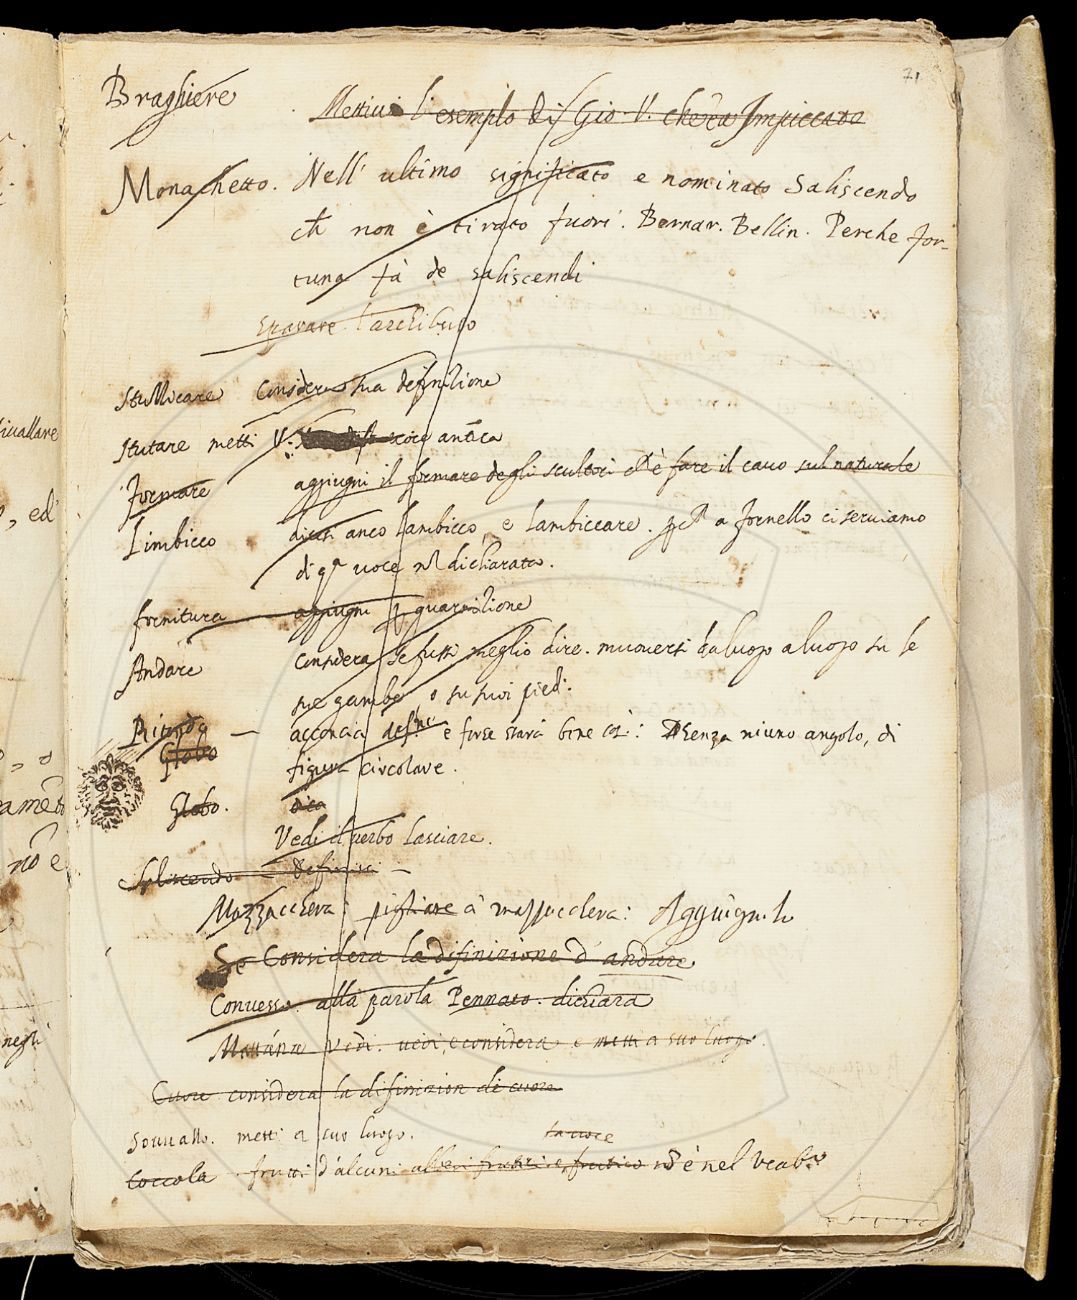 71
Braghiere
Mettivi l'esemplo di Gio. V. che era Impiccato
Monachetto. Nell' ultimo significato e nominato Saliscendo
ch̃ non è tirato fuori. Bernar. Bellin. Perche for-
tuna fà de saliscendi
sparare l'archibuso
Stuzzicare Considera sua definizione
Stutare metti V. voce antica
formare aggiugni il formare degli scultori ch̃ è fare il cavo sul naturale
Limbicco dicesi anco lambicco, e lambiccare. a fornello ci serviamo
di qa voce nõ dichiarata.
fornitura aggiugni p guarnizione
Andare Considera se fussi meglio dire. muoversi da luogo a luogo su le
sue gambe o su suoi piedi.
Ritondo — acconcia e forse starà bene così: Senza niuno angolo, di
Globo figura circolare.
Globo. dica
Vedi il verbo lasciare.
Saliscendo — definisci —
Mazzacchera: pigliare à mazzacchera: Aggiugnilo
Se Considera la difinizione d'andare
Convesso. alla parola Pennato. dichiara
vedi, e considera e metti a suo luogo.
Cuore considera la difinizion di cuore
Sovvallo. metti a suo luogo.
la voce
Coccola frutti d'alcuni alberi fruttiri e frutice nõ è nel Vocab.ro
ivallare
, ed
nõ e
negli